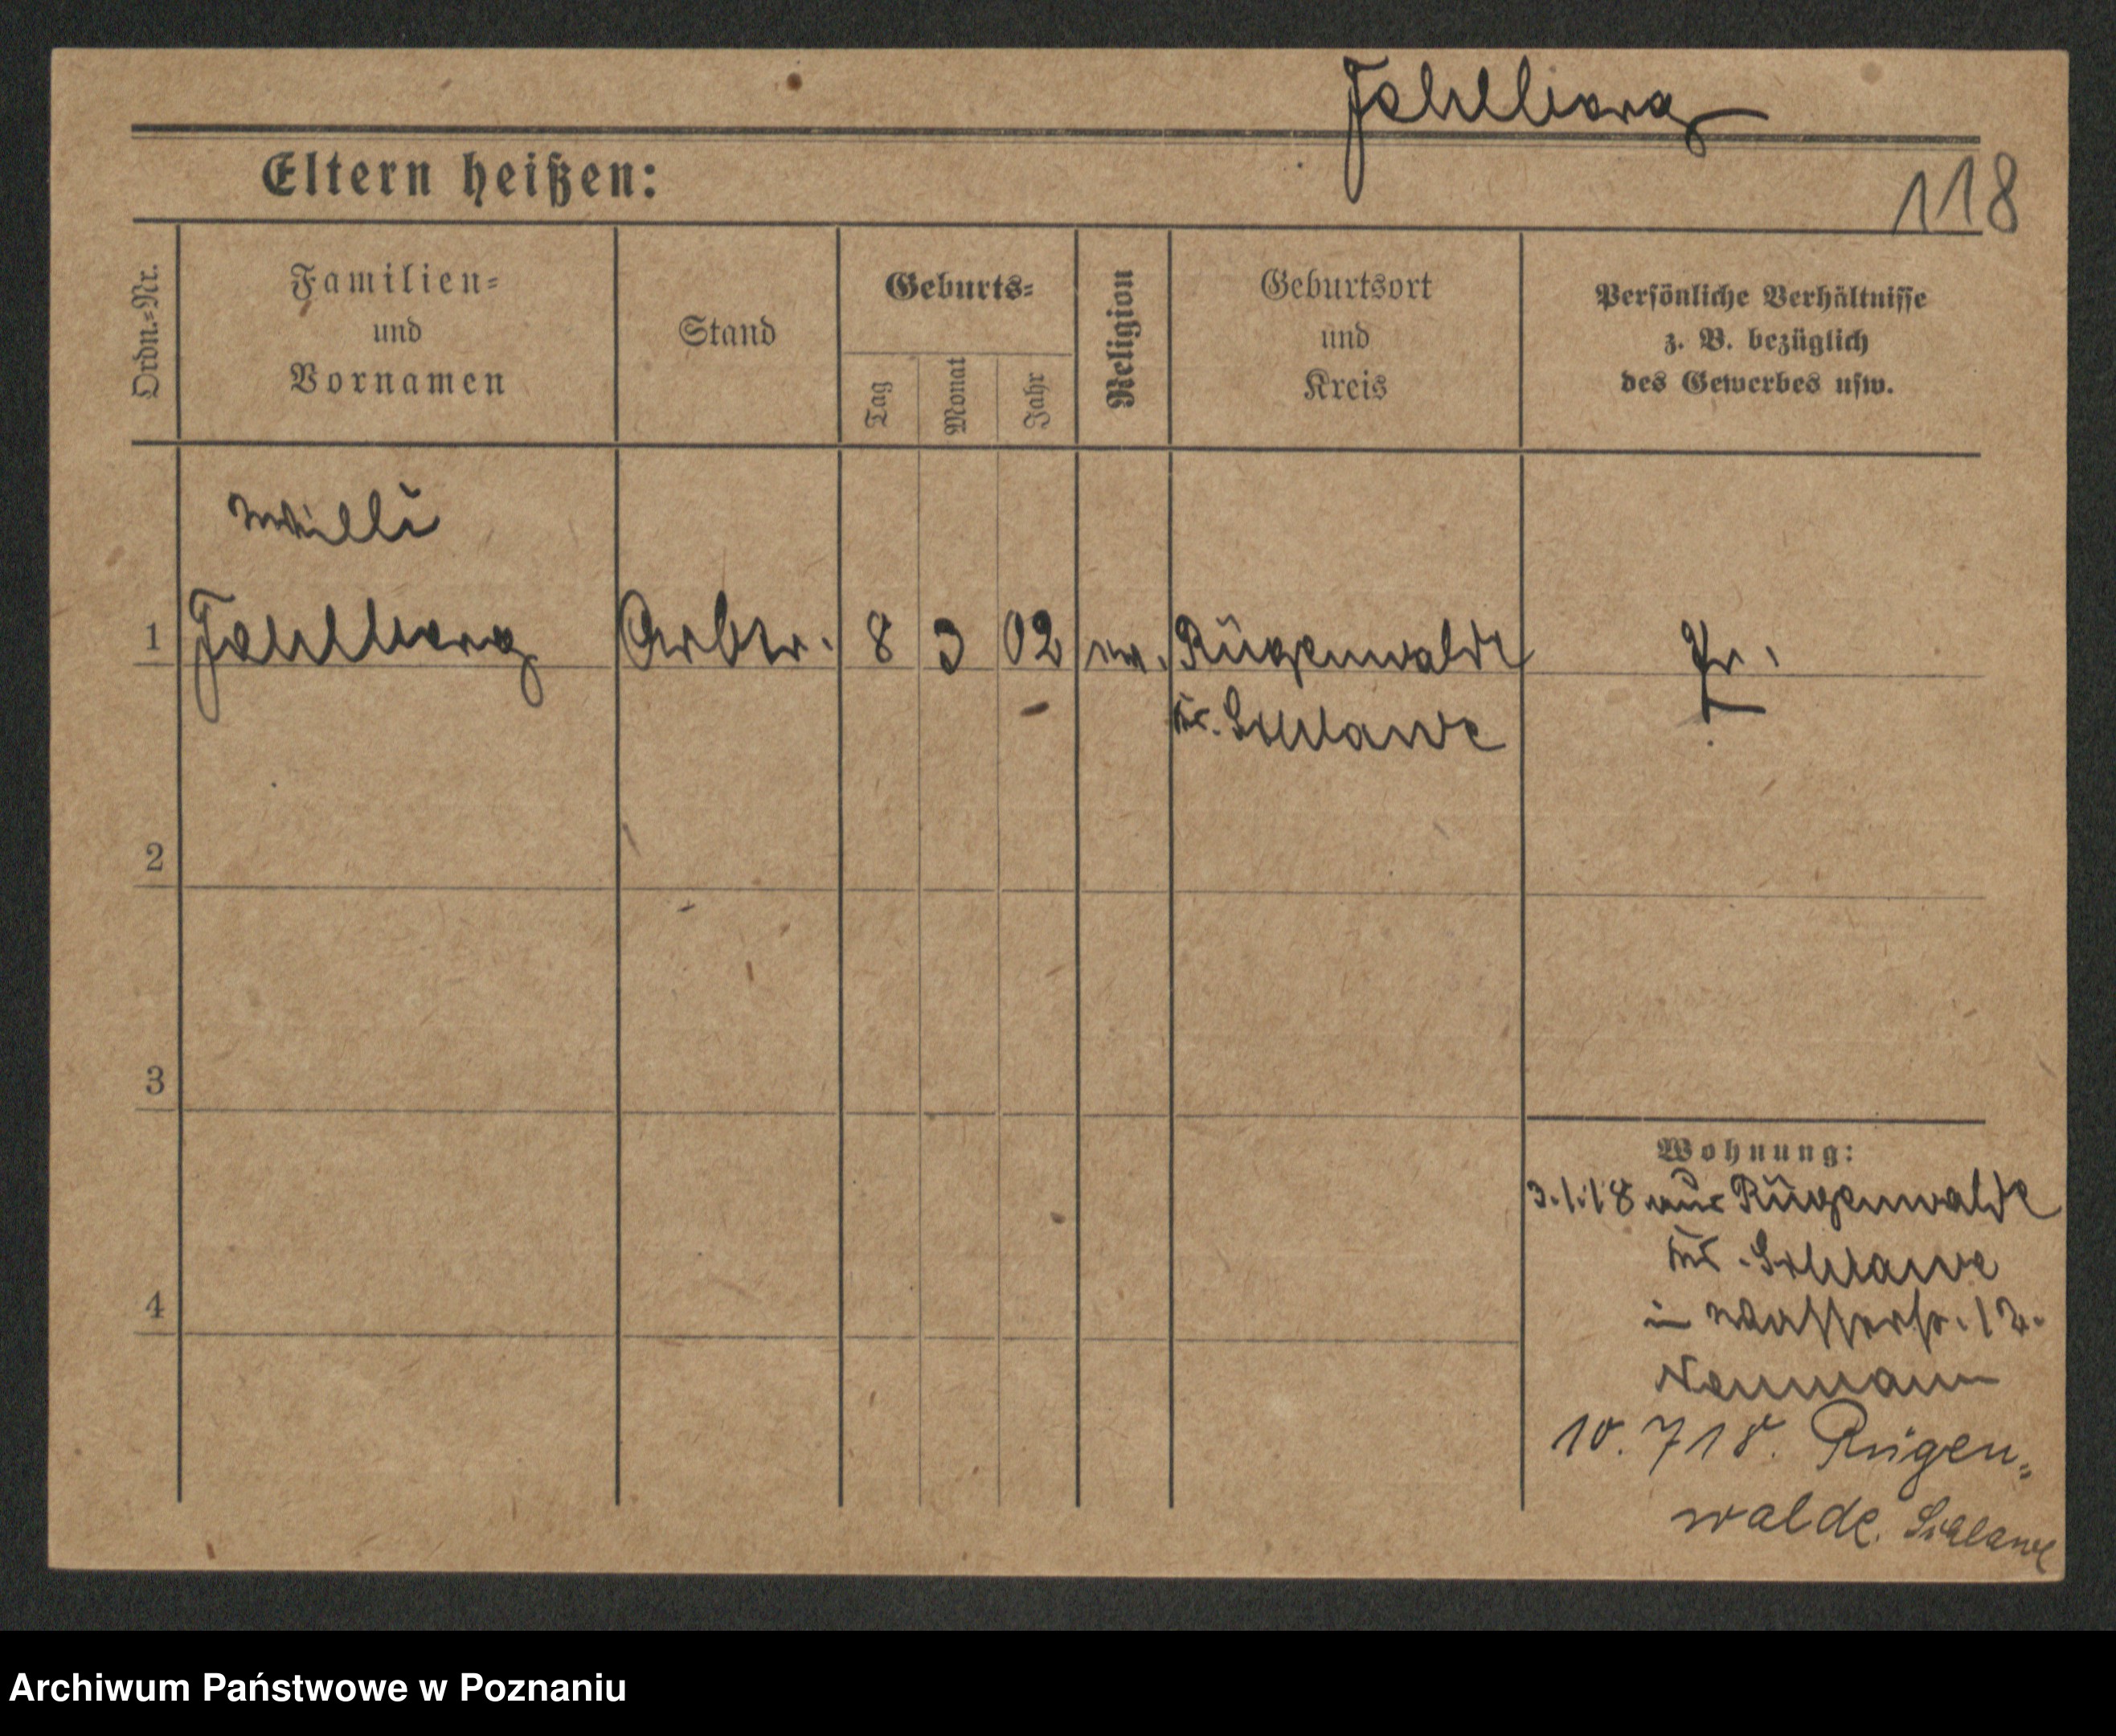 Fahlberg
Eltern heißen:
118
Ordn.-Nr.
Familien-
und
Vornamen
Stand
Geburts-
Tag
Monat
Jahr
Religion
Geburtsort
und
Kreis
Persönliche Verhältnisse
z. B. bezüglich
des Gewerbes usw.
Willi
1 Fahlberg Arbtr. 8 3 02 ev. Rügenwalde Pr.
Kr. Schlawe
2
3
4
Wohnung:
3.1.18 aus Rügenwalde
Kr. Schlawe
in Wasserstr. 12.
Neumann
10. 7 18. Rügen-
walde. Schlawe
Archiwum Państwowe w Poznaniu